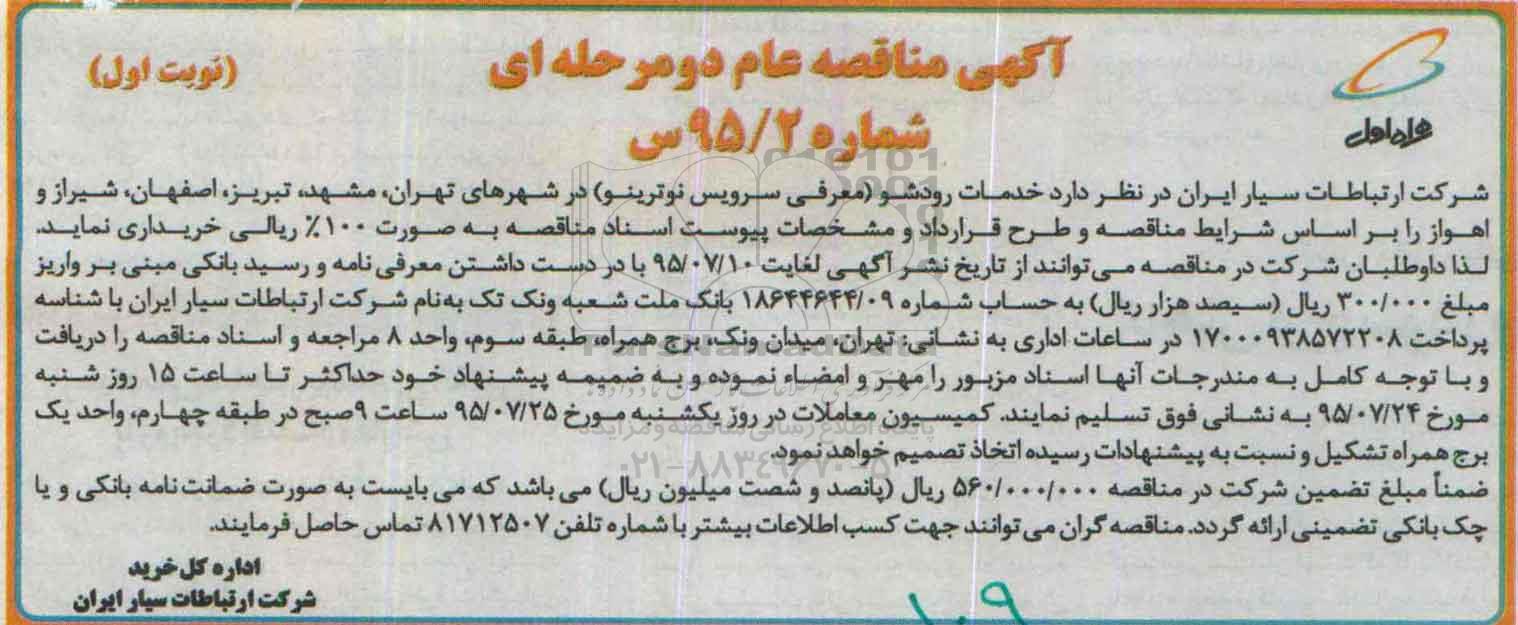 آگهی مناقصه عام دومرحله ای
(نوبت اول)
شماره ۹۵/۲ س
همراه اول
شرکت ارتباطات سیار ایران در نظر دارد خدمات رودشو (معرفی سرویس نوترینو) در شهرهای تهران، مشهد، تبریز، اصفهان، شیراز و
اهواز را بر اساس شرایط مناقصه و طرح قرارداد و مشخصات پیوست اسناد مناقصه به صورت ۱۰۰٪ ریالی خریداری نماید.
لذا داوطلبان شرکت در مناقصه می‌توانند از تاریخ نشر آگهی لغایت ۹۵/۰۷/۱۰ با در دست داشتن معرفی نامه و رسید بانکی مبنی بر واریز
مبلغ ۳۰۰/۰۰۰ ریال (سیصد هزار ریال) به حساب شماره ۱۸۶۴۴۶۴۴/۰۹ بانک ملت شعبه ونک تک به‌نام شرکت ارتباطات سیار ایران با شناسه
پرداخت ۱۷۰۰۰۹۳۸۵۷۲۲۰۸ در ساعات اداری به نشانی: تهران، میدان ونک، برج همراه، طبقه سوم، واحد ۸ مراجعه و اسناد مناقصه را دریافت
و با توجه کامل به مندرجات آنها اسناد مزبور را مهر و امضاء نموده و به ضمیمه پیشنهاد خود حداکثر تا ساعت ۱۵ روز شنبه
مورخ ۹۵/۰۷/۲۴ به نشانی فوق تسلیم نمایند. کمیسیون معاملات در روز یکشنبه مورخ ۹۵/۰۷/۲۵ ساعت ۹صبح در طبقه چهارم، واحد یک
برج همراه تشکیل و نسبت به پیشنهادات رسیده اتخاذ تصمیم خواهد نمود.
ضمناً مبلغ تضمین شرکت در مناقصه ۵۶۰/۰۰۰/۰۰۰ ریال (پانصد و شصت میلیون ریال) می باشد که می بایست به صورت ضمانت نامه بانکی و یا
چک بانکی تضمینی ارائه گردد. مناقصه گران می توانند جهت کسب اطلاعات بیشتر با شماره تلفن ۸۱۷۱۲۵۰۷ تماس حاصل فرمایند.
اداره کل خرید
شرکت ارتباطات سیار ایران
۱۰۹
پایگاه اطلاع رسانی مناقصه و مزایده
۰۲۱-۸۸۳۴۹۶۷۰-۵